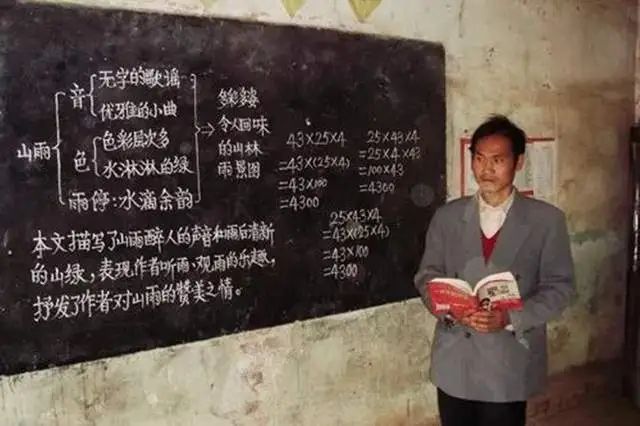 山雨
音
无字的歌谣
优雅的小曲
色
色彩层次多
水淋淋的绿
雨停:水滴余韵
令人回味
的山林
雨景图
43×25×4
=43×(25×4)
=43×100
=4300
25×43×4
=25×4×43
=100×43
=4300
25×43×4
=43×(25×4)
=43×100
=4300
本文描写了山雨醉人的声音和雨后清新
的山绿,表现作者听雨、观雨的乐趣,
抒发了作者对山雨的赞美之情。